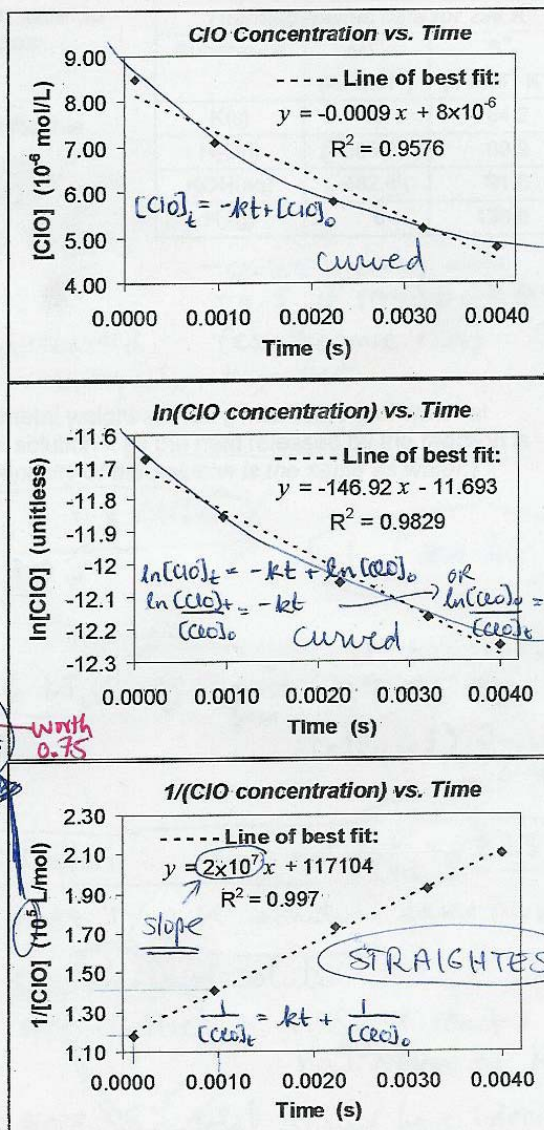 ClO Concentration vs. Time
9.00
8.00
7.00
6.00
5.00
4.00
[ClO] (10⁻⁶ mol/L)
----- Line of best fit:
y = -0.0009 x + 8×10⁻⁶
R² = 0.9576
[ClO]ₜ = -kt + [ClO]₀
curved
0.0000 0.0010 0.0020 0.0030 0.0040
Time (s)
ln(ClO concentration) vs. Time
-11.6
-11.7
-11.8
-11.9
-12
-12.1
-12.2
-12.3
ln[ClO] (unitless)
----- Line of best fit:
y = -146.92 x - 11.693
R² = 0.9829
ln[ClO]ₜ = -kt + ln[ClO]₀
ln[ClO]ₜ/[ClO]₀ = -kt → OR ln[ClO]₀/[ClO]ₜ =
curved
0.0000 0.0010 0.0020 0.0030 0.0040
Time (s)
worth
0.75
1/(ClO concentration) vs. Time
2.10
1.90
1.70
1.50
1.30
1.10
1/[ClO] (10⁵ L/mol)
----- Line of best fit:
y = 2×10⁷ x + 117104
R² = 0.997
slope
STRAIGHTES
1/[ClO]ₜ = kt + 1/[ClO]₀
0.0000 0.0010 0.0020 0.0030 0.0040
Time (s)